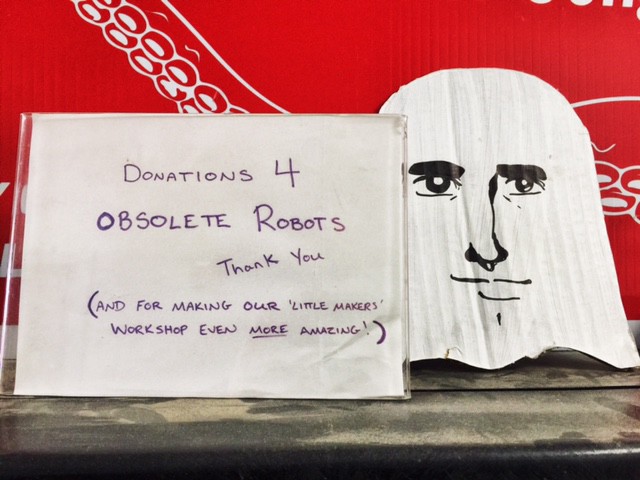 DONATIONS 4
OBSOLETE ROBOTS
Thank You
(AND FOR MAKING OUR 'LITTLE MAKERS'
WORKSHOP EVEN MORE AMAZING!)